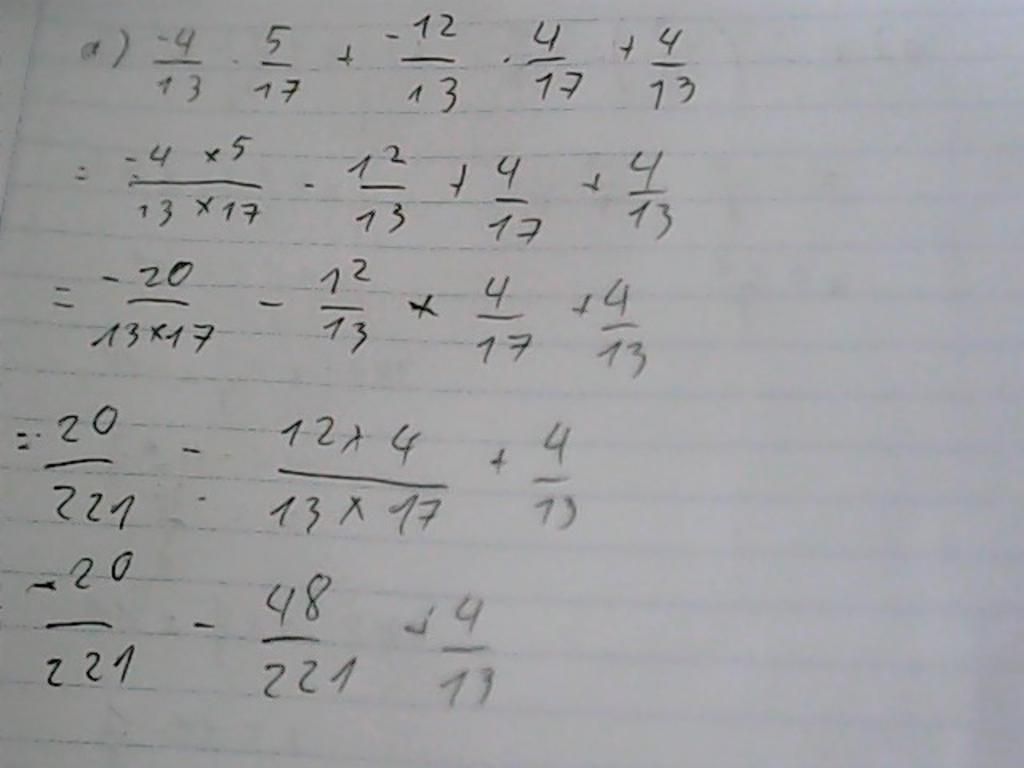 a) -4/13 · 5/17 + -12/13 · 4/17 + 4/13
= -4 × 5/13 × 17 - 12/13 + 4/17 + 4/13
= -20/13 × 17 - 12/13 × 4/17 + 4/13
= -20/221 - 12 × 4/13 × 17 + 4/13
-20/221 - 48/221 + 4/13